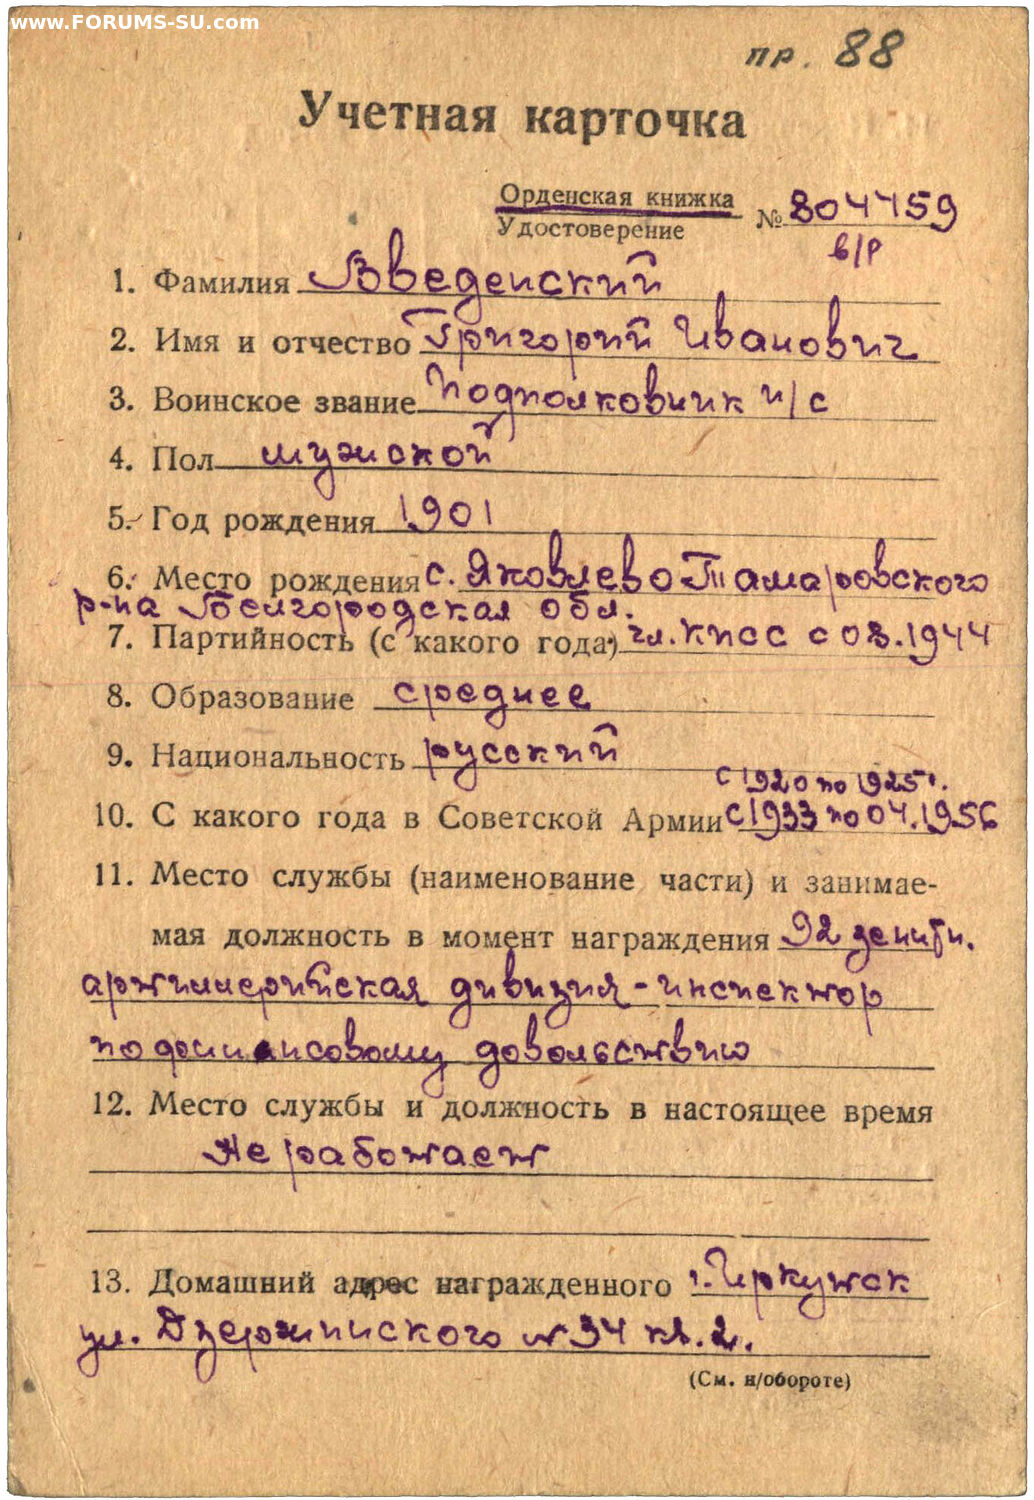 www.FORUMS-SU.com
пр. 88
Учетная карточка
Орденская книжка
Удостоверение
№ 804459
в/р
1. Фамилия Введенский
2. Имя и отчество Григорий Иванович
3. Воинское звание Подполковник и/с
4. Пол мужской
5. Год рождения 1901
6. Место рождения с. Яковлево Тамаровского
р-на Белгородская обл.
7. Партийность (с какого года) чл. КПСС с 08.1944
8. Образование среднее
9. Национальность русский
с 1920 по 1925 г.
10. С какого года в Советской Армии с 1933 по 04.1956
11. Место службы (наименование части) и занимае-
мая должность в момент награждения 92 зенитн.
артиллерийская дивизия - инспектор
по финансовому довольствию
12. Место службы и должность в настоящее время
Не работает
13. Домашний адрес награжденного г. Иркутск
ул. Дзержинского № 34 кв. 2.
(См. н/обороте)